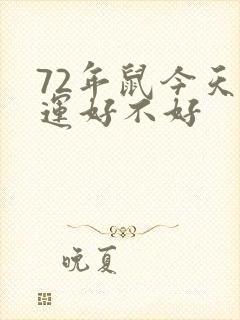 72年鼠今天
运好不好
晚夏